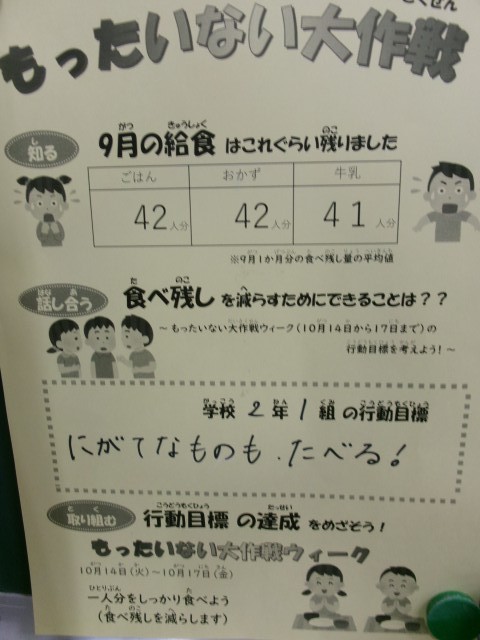 もったいない大作戦
知る
9月の給食 はこれぐらい残りました
ごはん おかず 牛乳
42人分 42人分 41人分
※9月1か月分の食べ残し量の平均値
話し合う
食べ残し を減らすためにできることは??
~もったいない大作戦ウィーク(10月14日から17日まで)の
行動目標を考えよう!~
学校 2年 1組 の行動目標
にがてなものも、たべる!
取り組む
行動目標 の達成 をめざそう!
もったいない大作戦ウィーク
10月14日(火)~10月17日(金)
一人分をしっかり食べよう
(食べ残しを減らします)